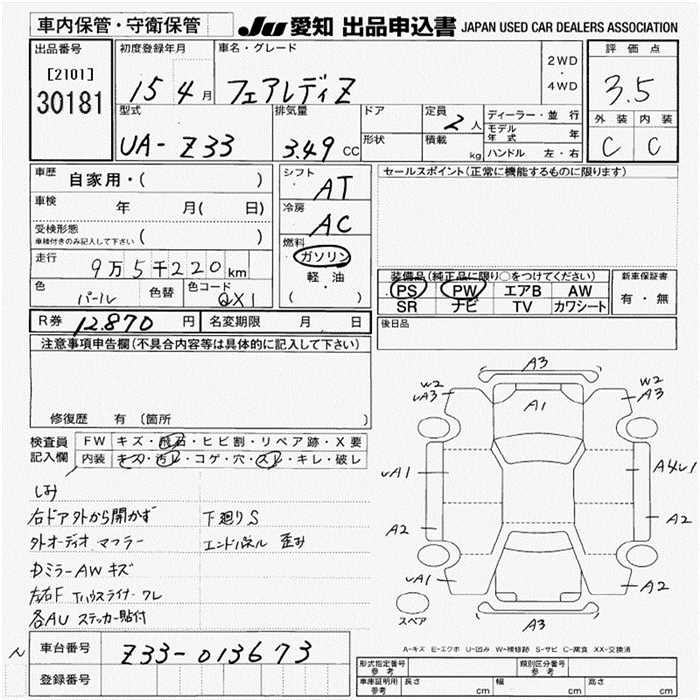 車内保管・守衛保管
JU 愛知 出品申込書 JAPAN USED CAR DEALERS ASSOCIATION
出品番号
[2101]
30181
初度登録年月
15 4月
車名・グレード
フェアレディZ
2WD
・
4WD
評価点
3.5
外装 内装
C C
型式
UA-Z33
排気量
3.49 CC
ドア
形状
定員
2人
積載
kg
ディーラー・並行
モデル年式 年
ハンドル 左・右
車歴 自家用・( )
車検 年 月( 日)
受検形態
車検付きのみ記入して下さい ( )
走行 9万5千220km
色 パール 色替 色コード QX1
シフト
AT
冷房
AC
燃料
ガソリン
軽・油
( )
セールスポイント(正常に機能するものに限ります)
装備品(純正品に限り○をつけてください)
PS PW エアB AW
SR ナビ TV カワシート
新車保証書
有・無
後日品
R券 12,870円 名変期限 月 日
注意事項申告欄(不具合内容等は具体的に記入して下さい)
修復歴 有(箇所 )
検査員
記入欄
FW キズ・飛石・ヒビ割・リペア跡・X要
内装 キズ・汚レ・コゲ・穴・スレ・キレ・破レ
しみ
右ドア外から開かず 下廻りS
外オーディオ マフラー エンドパネル 歪み
Dミラー AW キズ
左右F Tハウスライナー ワレ
各AU ステッカー貼付
A3
W2
vA3
W2
A3
A1
vA1
A4レ1
A2
A2
vA1
A2
スペア
A3
A-キズ E-エクボ U-凹み W-補修跡 S-サビ C-腐食 XX-交換済
車台番号 Z33-013673
登録番号
形式指定番号
参考
類別区分番号
参考
車庫証明用
参考
長さ cm 幅 cm 高さ cm